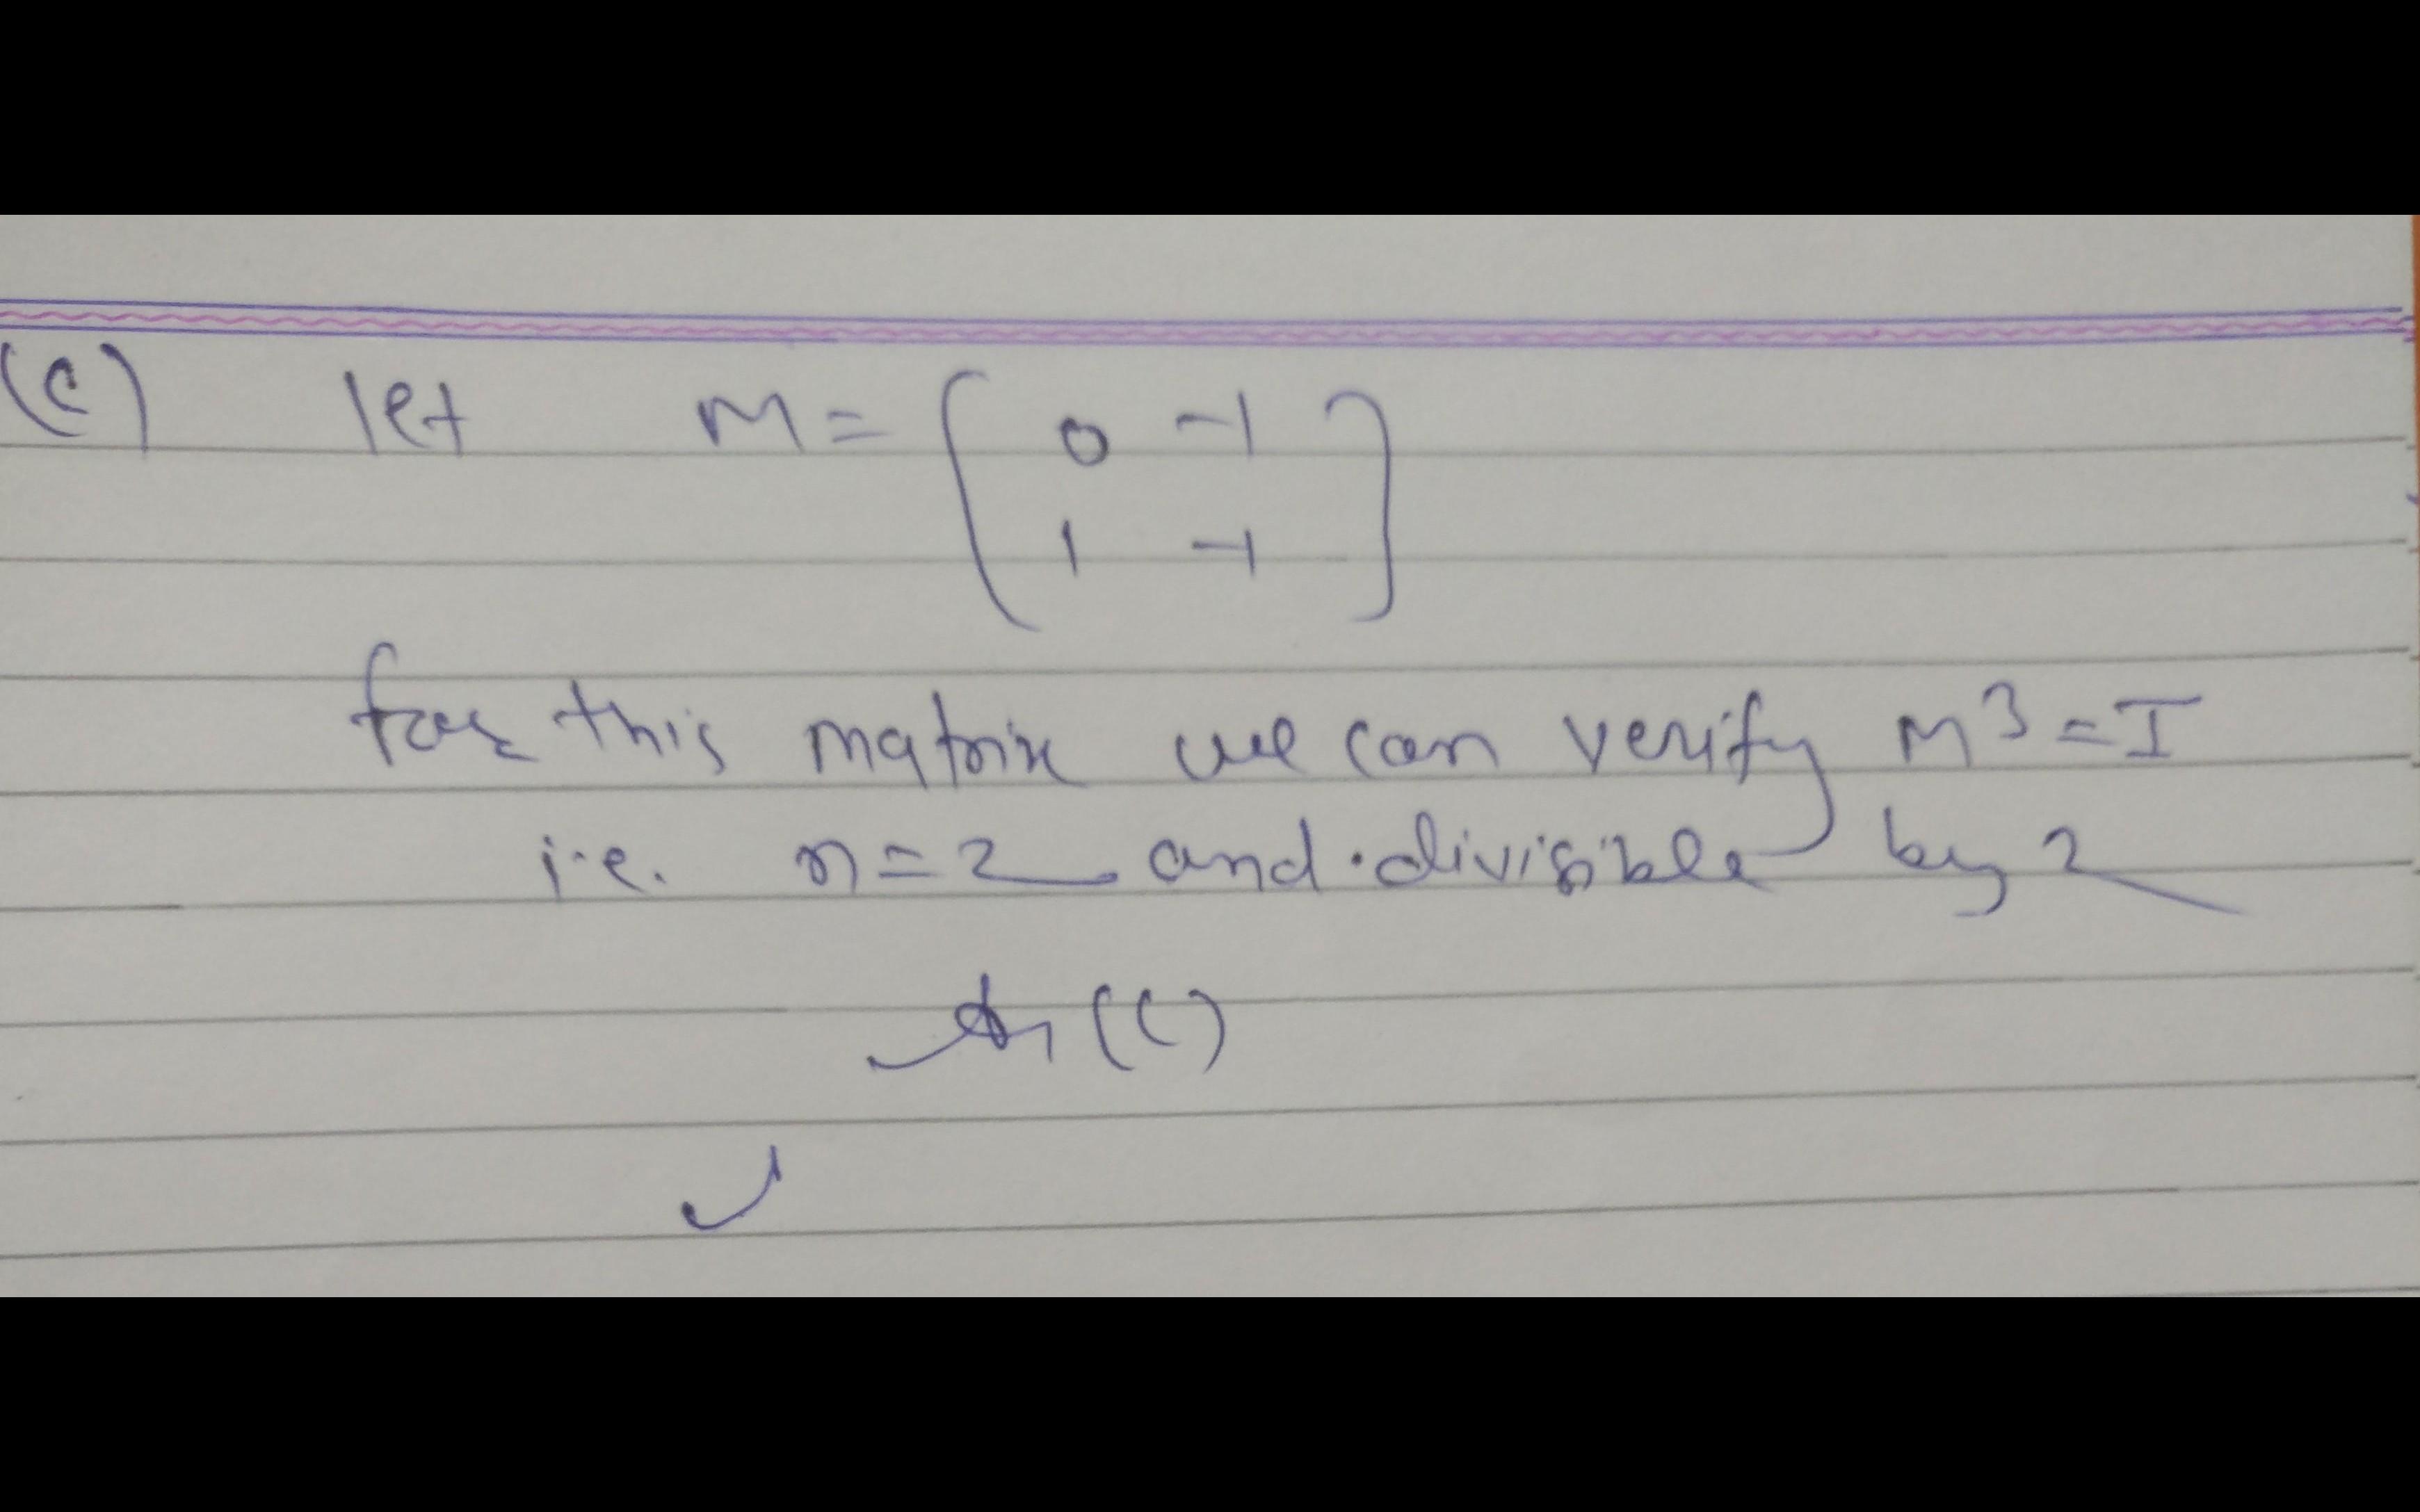 (C) let M = [ 0 -1
1 -1 ]
for this matrix we can verify M³ = I
i.e. n = 2 and divisible by 2
An (C)